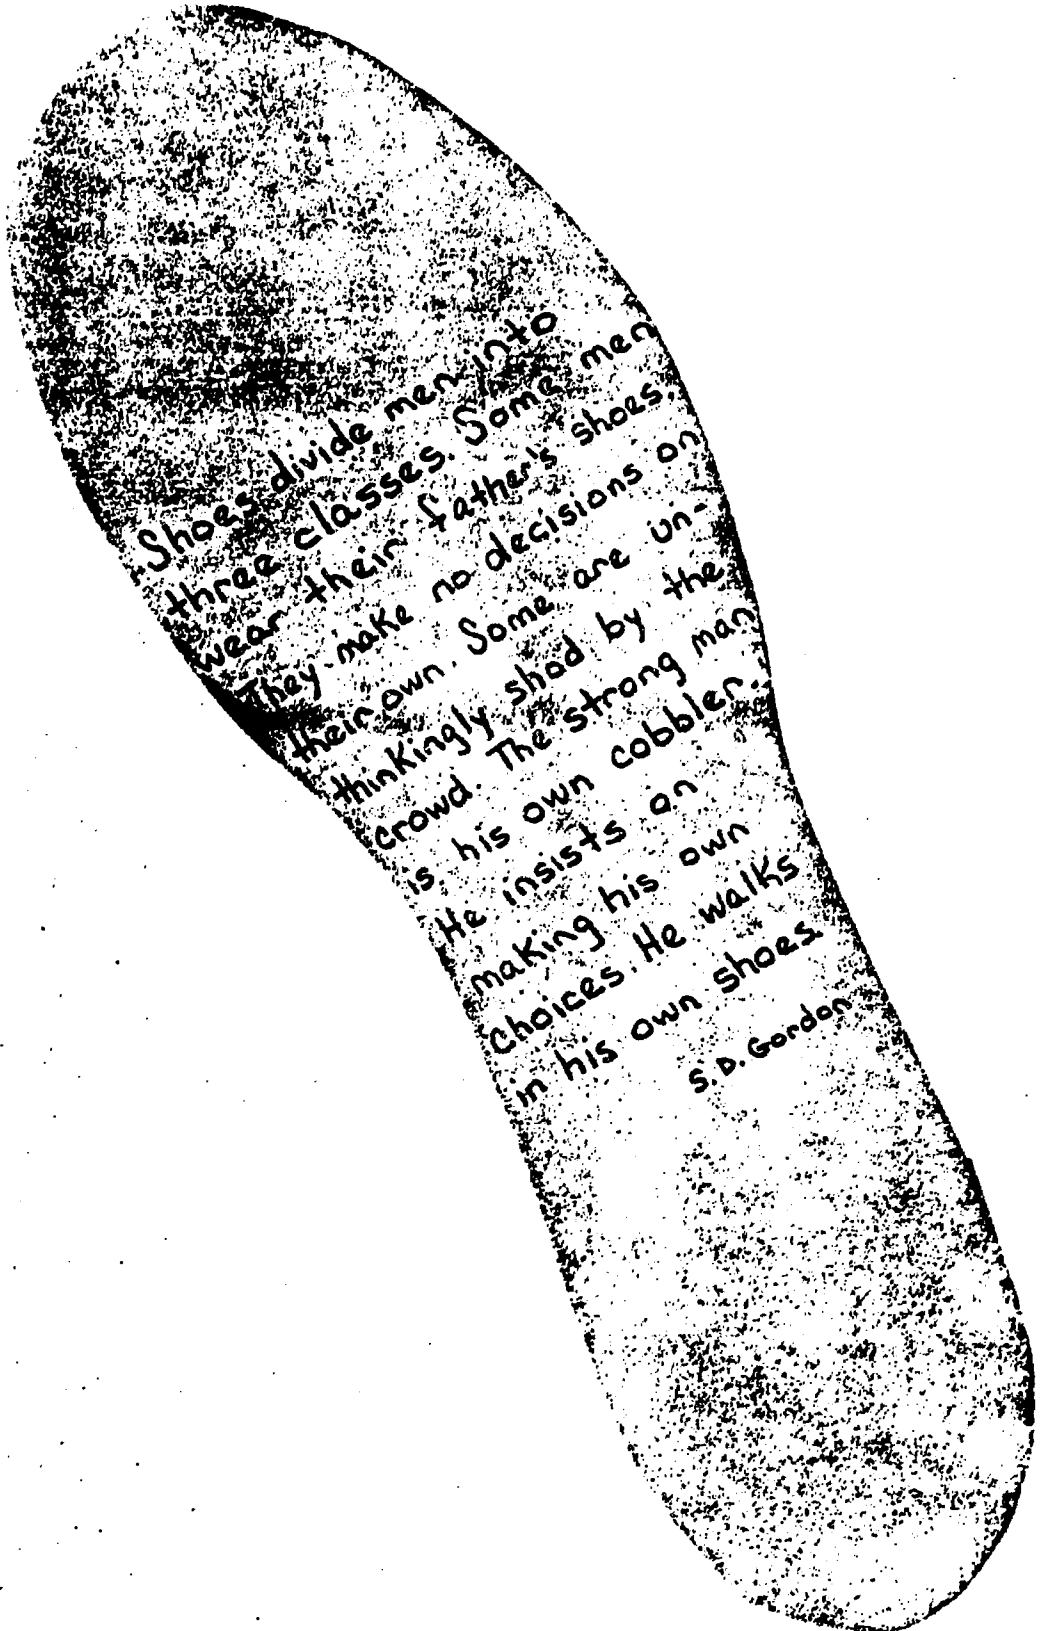 Shoes divide men into
three classes. Some men
wear their father's shoes.
They make no decisions on
their own. Some are un-
thinkingly shod by the
crowd. The strong man
is his own cobbler.
He insists on
making his own
choices. He walks
in his own shoes.
S. D. Gordon